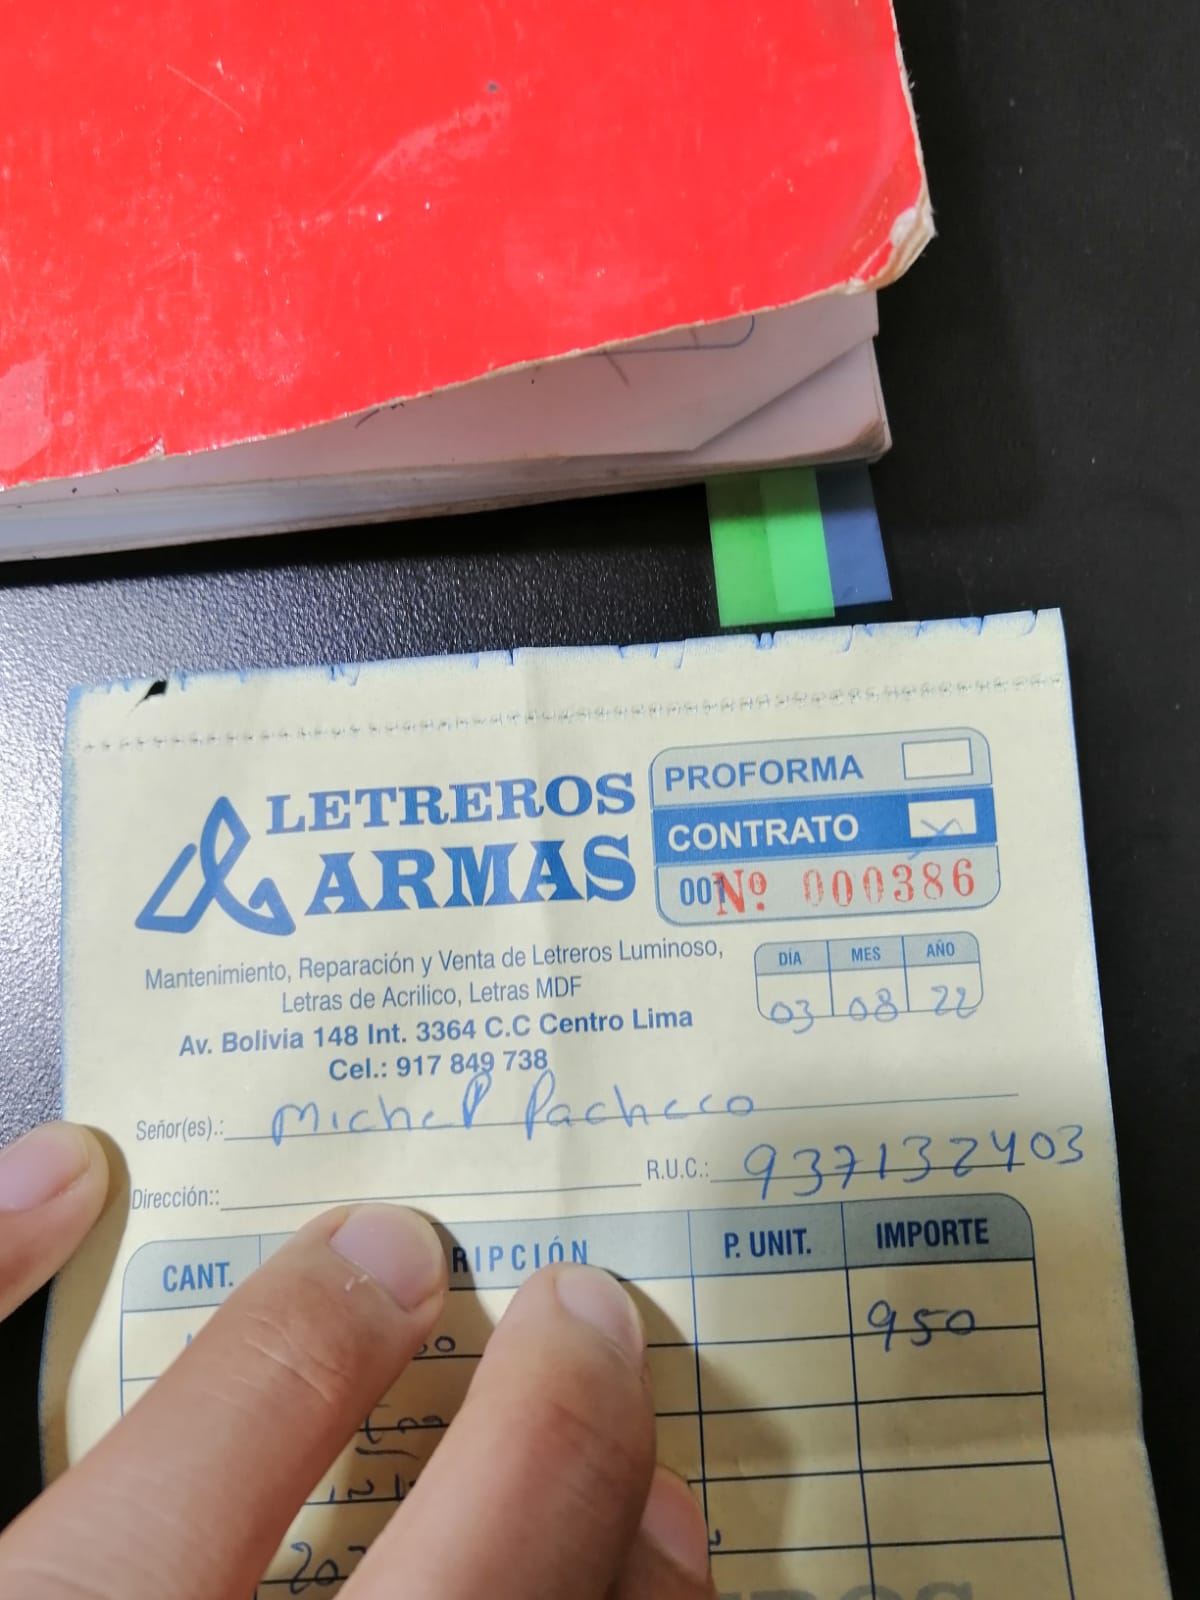 LETREROS
ARMAS
PROFORMA
CONTRATO
001 Nº 000386
Mantenimiento, Reparación y Venta de Letreros Luminoso,
Letras de Acrilico, Letras MDF
Av. Bolivia 148 Int. 3364 C.C Centro Lima
Cel.: 917 849 738
DÍA MES AÑO
03 08 22
Señor(es).: Michel Pacheco
R.U.C.: 937132403
Dirección::
CANT. RIPCIÓN P. UNIT. IMPORTE
950